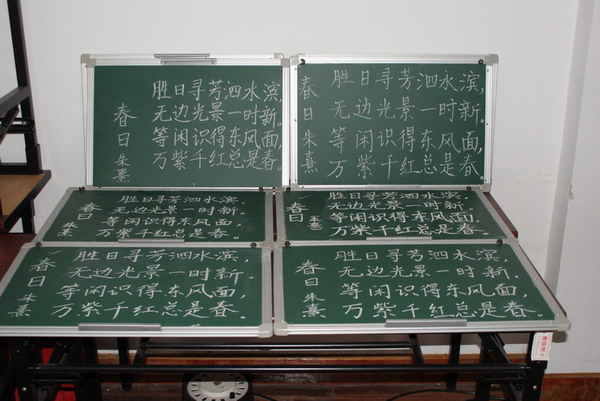 春日 朱熹
胜日寻芳泗水滨，
无边光景一时新。
等闲识得东风面，
万紫千红总是春。
春日 朱熹
胜日寻芳泗水滨，
无边光景一时新。
等闲识得东风面，
万紫千红总是春。
春日 朱熹
胜日寻芳泗水滨，
无边光景一时新。
等闲识得东风面，
万紫千红总是春。
春日 朱熹
胜日寻芳泗水滨，
无边光景一时新。
等闲识得东风面，
万紫千红总是春。
春日 朱熹
胜日寻芳泗水滨，
无边光景一时新，
等闲识得东风面，
万紫千红总是春。
春日 朱熹
胜日寻芳泗水滨，
无边光景一时新，
等闲识得东风面，
万紫千红总是春。